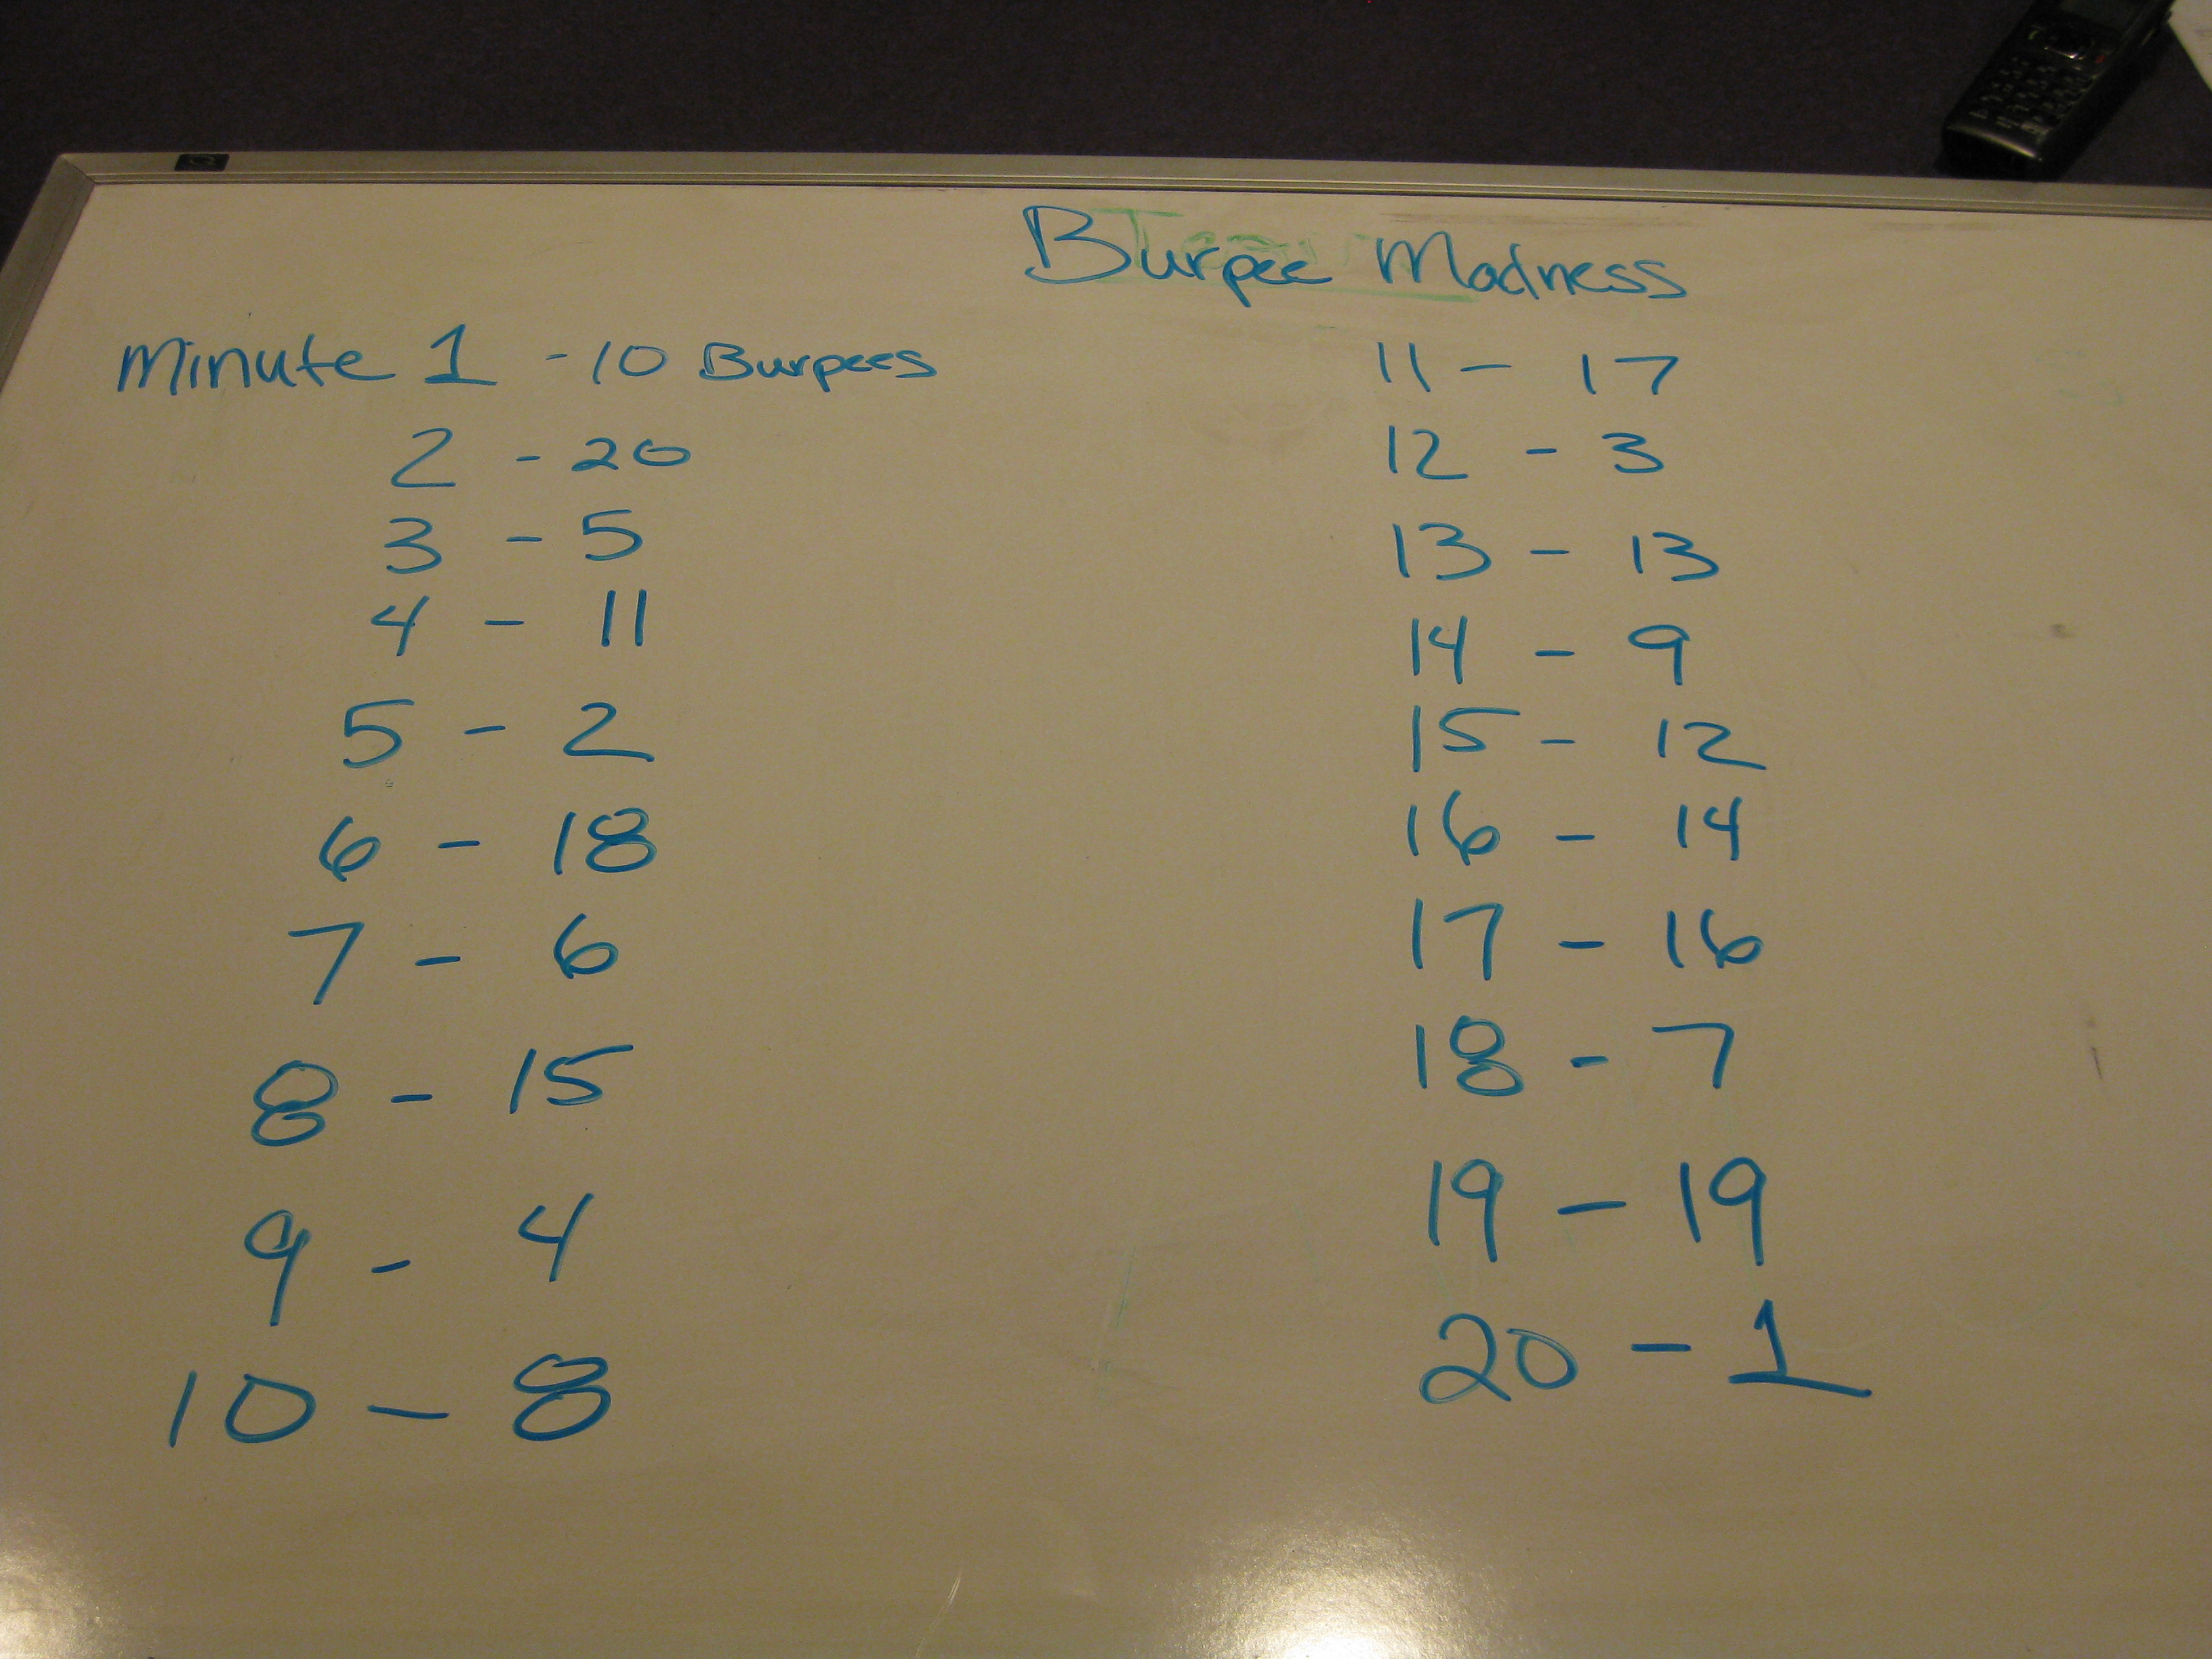 Burpee Madness
Minute 1 - 10 Burpees
2 - 20
3 - 5
4 - 11
5 - 2
6 - 18
7 - 6
8 - 15
9 - 4
10 - 8
11 - 17
12 - 3
13 - 13
14 - 9
15 - 12
16 - 14
17 - 16
18 - 7
19 - 19
20 - 1